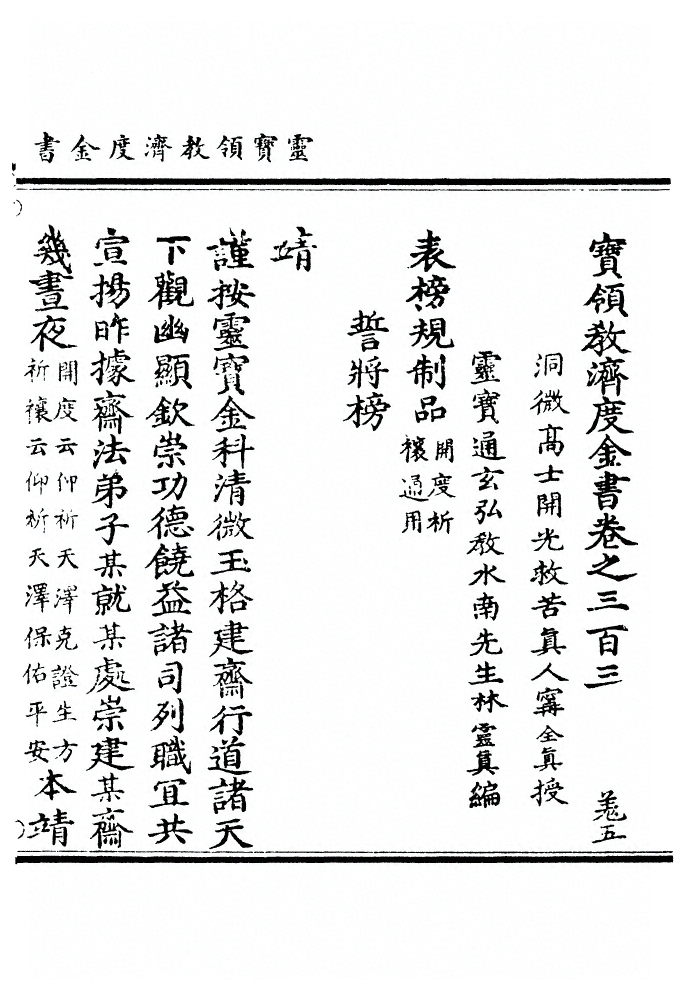 靈寶領教濟度金書
寶領教濟度金書卷之三百三
羗五
洞微高士開光救苦眞人寗全眞授
靈寶通玄弘教水南先生林靈眞編
表榜規制品開度祈
禳通用
誓將榜
靖
謹按靈寶金科清微玉格建齋行道諸天
下觀幽顯欽崇功德饒益諸司列職宜共
宣揚昨據齋法弟子某就某處崇建某齋
幾晝夜開度云仰祈天澤克證生方
祈禳云仰祈天澤保佑平安本靖